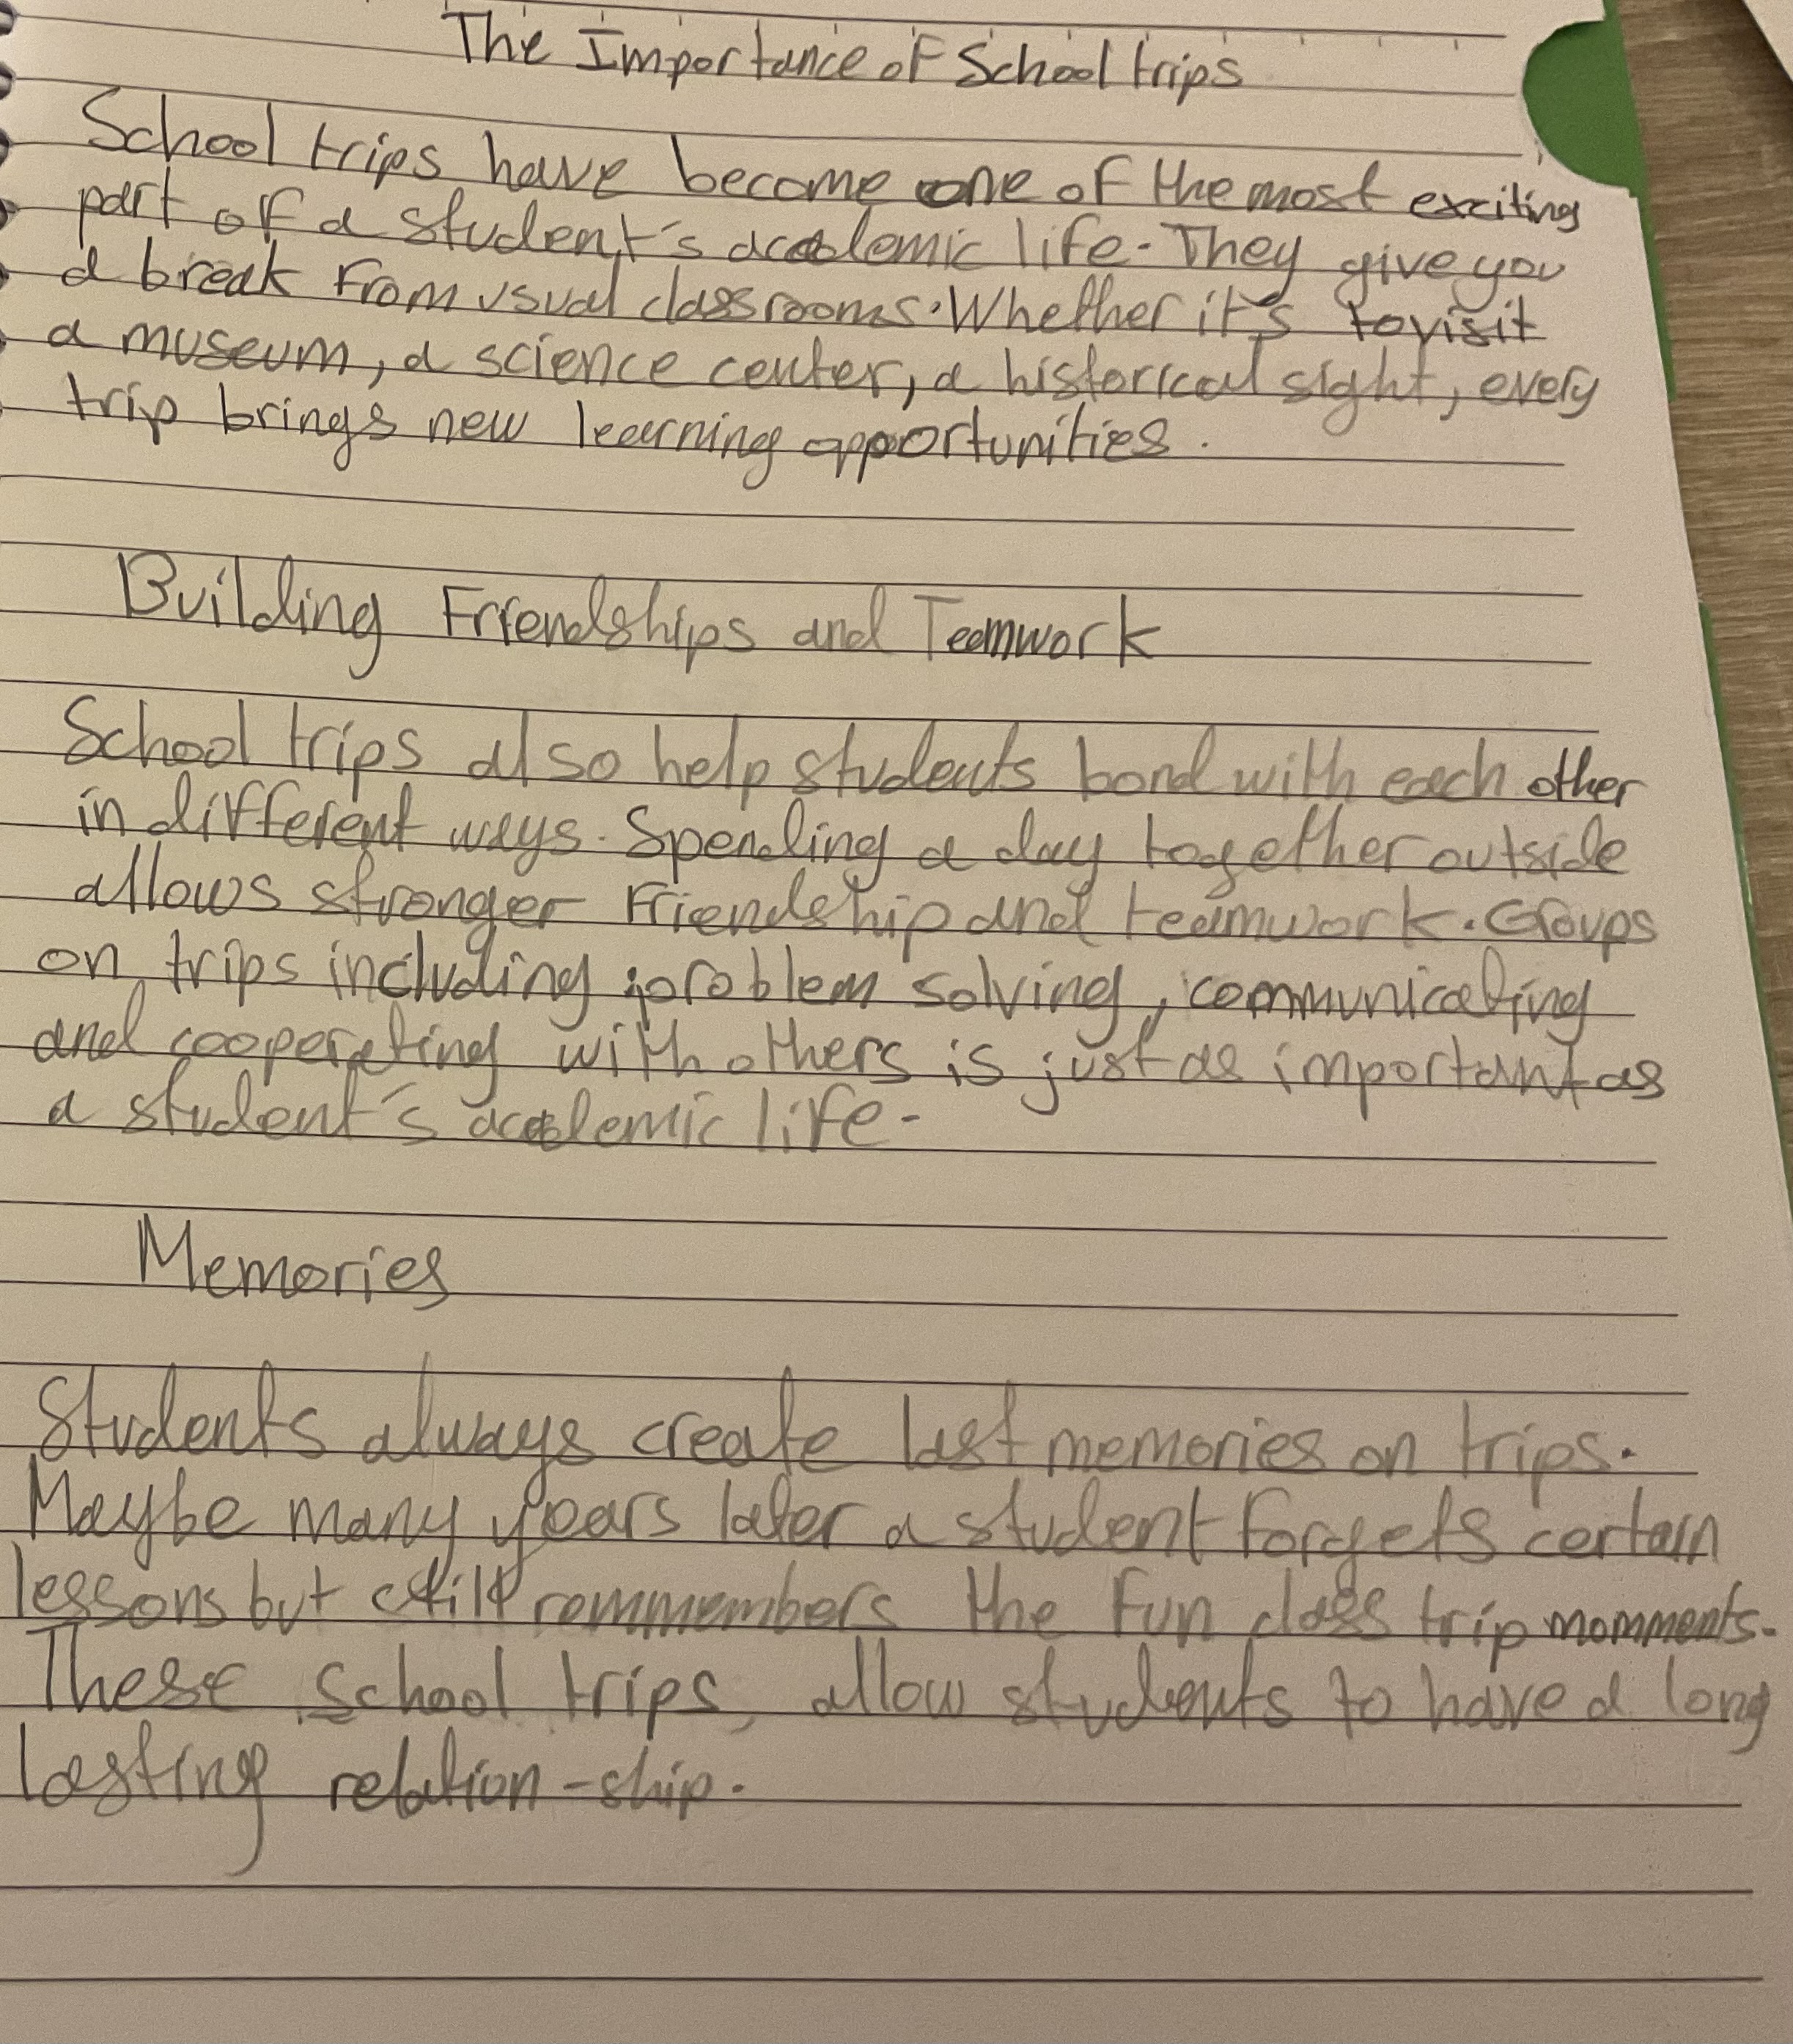 The Importance of School trips
School trips have become one of the most exciting
part of a student's academic life. They give you
a break from usual classrooms. Whether it's to visit
a museum, a science center, a historical sight, every
trip brings new learning opportunities.
Building Friendships and Teamwork
School trips also help students bond with each other
in different ways. Spending a day together outside
allows stronger friendship and teamwork. Groups
on trips including problem solving, communicating
and cooperating with others is just as important as
a student's academic life.
Memories
Students always create last memories on trips.
Maybe many years later a student forgets certain
lessons but still remmembers the fun class trip momments.
These school trips, allow students to have a long
lasting relation-ship.